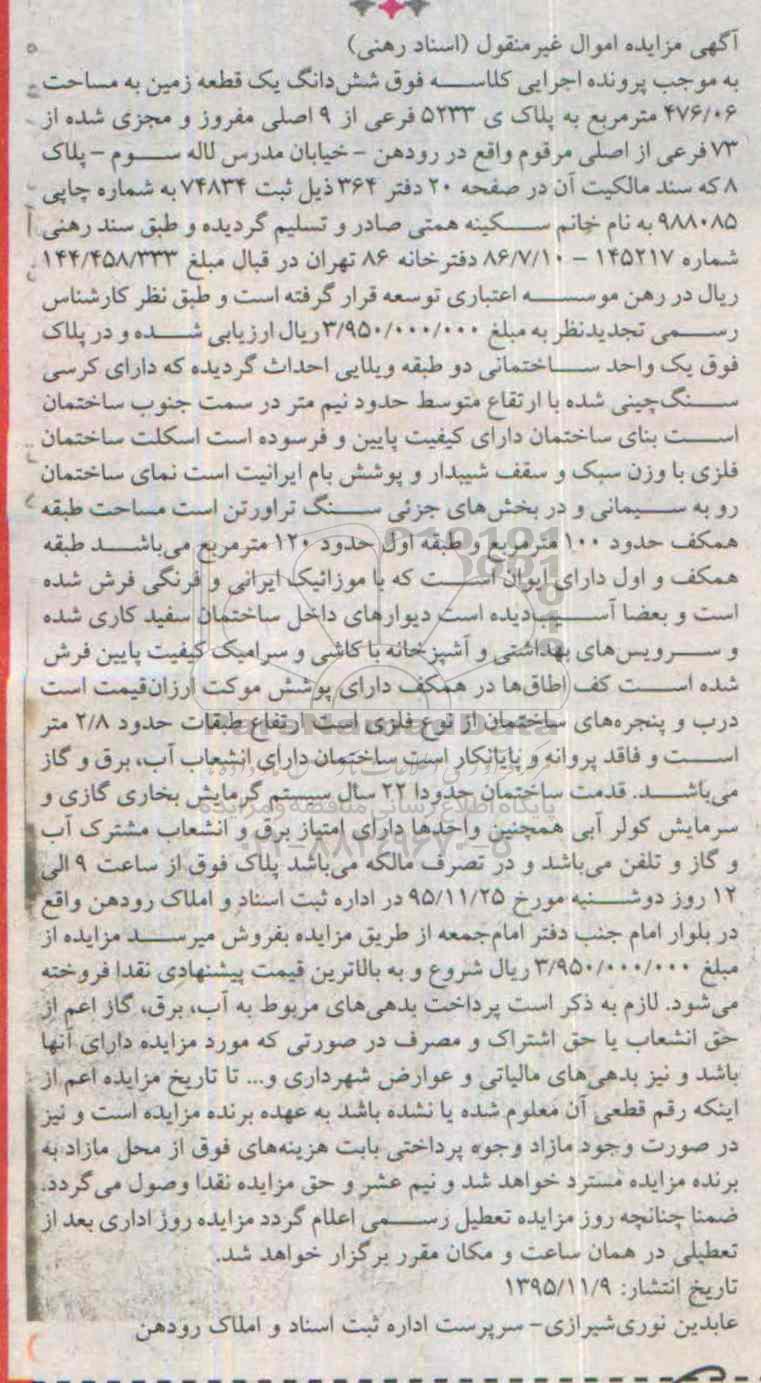 آگهی مزایده اموال غیرمنقول (اسناد رهنی)
به موجب پرونده اجرایی کلاسه فوق شش‌دانگ یک قطعه زمین به مساحت
۴۷۶/۰۶ مترمربع به پلاک ی ۵۲۳۳ فرعی از ۹ اصلی مفروز و مجزی شده از
۷۳ فرعی از اصلی مرقوم واقع در رودهن - خیابان مدرس لاله سوم - پلاک
۸ که سند مالکیت آن در صفحه ۲۰ دفتر ۳۶۴ ذیل ثبت ۷۴۸۳۴ به شماره چاپی
۹۸۸۰۸۵ به نام خانم سکینه همتی صادر و تسلیم گردیده و طبق سند رهنی
شماره ۱۴۵۲۱۷ - ۸۶/۷/۱۰ دفترخانه ۸۶ تهران در قبال مبلغ ۱۴۴/۴۵۸/۳۳۳
ریال در رهن موسسه اعتباری توسعه قرار گرفته است و طبق نظر کارشناس
رسمی تجدیدنظر به مبلغ ۳/۹۵۰/۰۰۰/۰۰۰ ریال ارزیابی شده و در پلاک
فوق یک واحد ساختمانی دو طبقه ویلایی احداث گردیده که دارای کرسی
سنگ‌چینی شده با ارتفاع متوسط حدود نیم متر در سمت جنوب ساختمان
است بنای ساختمان دارای کیفیت پایین و فرسوده است اسکلت ساختمان
فلزی با وزن سبک و سقف شیبدار و پوشش بام ایرانیت است نمای ساختمان
رو به سیمانی و در بخش‌های جزئی سنگ تراورتن است مساحت طبقه
همکف حدود ۱۰۰ مترمربع و طبقه اول حدود ۱۲۰ مترمربع می‌باشد طبقه
همکف و اول دارای ایوان است که با موزائیک ایرانی و فرنگی فرش شده
است و بعضا آسیب‌دیده است دیوارهای داخل ساختمان سفید کاری شده
و سرویس‌های بهداشتی و آشپزخانه با کاشی و سرامیک کیفیت پایین فرش
شده است کف اطاق‌ها در همکف دارای پوشش موکت ارزان‌قیمت است
درب و پنجره‌های ساختمان از نوع فلزی است ارتفاع طبقات حدود ۲/۸ متر
است و فاقد پروانه و پایانکار است ساختمان دارای انشعاب آب، برق و گاز
می‌باشد. قدمت ساختمان حدودا ۲۲ سال سیستم گرمایش بخاری گازی و
سرمایش کولر آبی همچنین واحدها دارای امتیاز برق و انشعاب مشترک آب
و گاز و تلفن می‌باشد و در تصرف مالکه می‌باشد پلاک فوق از ساعت ۹ الی
۱۲ روز دوشنبه مورخ ۹۵/۱۱/۲۵ در اداره ثبت اسناد و املاک رودهن واقع
در بلوار امام جنب دفتر امام‌جمعه از طریق مزایده بفروش میرسد مزایده از
مبلغ ۳/۹۵۰/۰۰۰/۰۰۰ ریال شروع و به بالاترین قیمت پیشنهادی نقدا فروخته
می‌شود. لازم به ذکر است پرداخت بدهی‌های مربوط به آب، برق، گاز اعم از
حق انشعاب یا حق اشتراک و مصرف در صورتی که مورد مزایده دارای آنها
باشد و نیز بدهی‌های مالیاتی و عوارض شهرداری و... تا تاریخ مزایده اعم از
اینکه رقم قطعی آن معلوم شده یا نشده باشد به عهده برنده مزایده است و نیز
در صورت وجود مازاد وجوه پرداختی بابت هزینه‌های فوق از محل مازاد به
برنده مزایده مسترد خواهد شد و نیم عشر و حق مزایده نقدا وصول می‌گردد.
ضمنا چنانچه روز مزایده تعطیل رسمی اعلام گردد مزایده روز اداری بعد از
تعطیلی در همان ساعت و مکان مقرر برگزار خواهد شد.
تاریخ انتشار: ۱۳۹۵/۱۱/۹
عابدین نوری‌شیرازی - سرپرست اداره ثبت اسناد و املاک رودهن